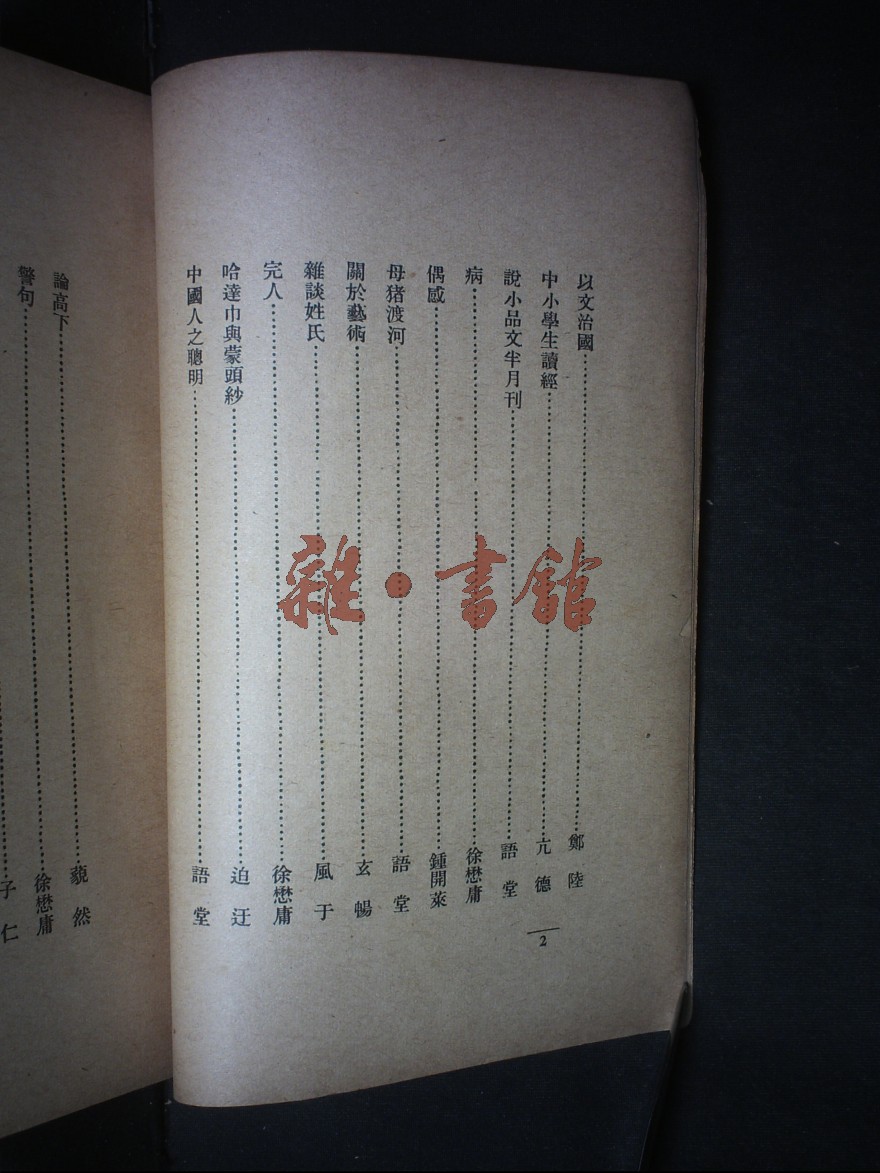 以文治國……鄭陸
中小學生讀經……亢德
說小品文半月刊……語堂
病……徐懋庸
偶感……鍾開萊
母猪渡河……語堂
關於藝術……玄暢
雜談姓氏……風于
完人……徐懋庸
哈達巾與蒙頭紗……迫迂
中國人之聰明……語堂
2
論高下……藐然
警句……徐懋庸
子仁
雜·書館